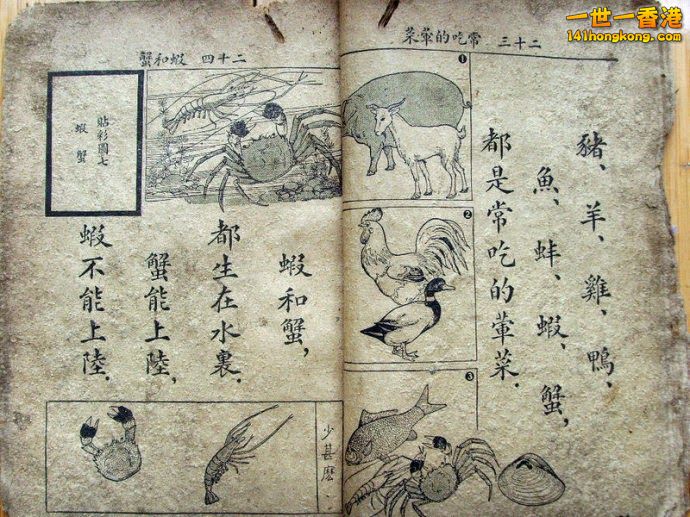 一世一香港
141hongkong.com
二十三 常吃的葷菜
豬、羊、雞、鴨、
魚、蚌、蝦、蟹，
都是常吃的葷菜．
❶
❷
❸
二十四 蝦和蟹
貼彩圖七
蝦 蟹
蝦和蟹，
都生在水裏．
蟹能上陸，
蝦不能上陸．
少甚麽